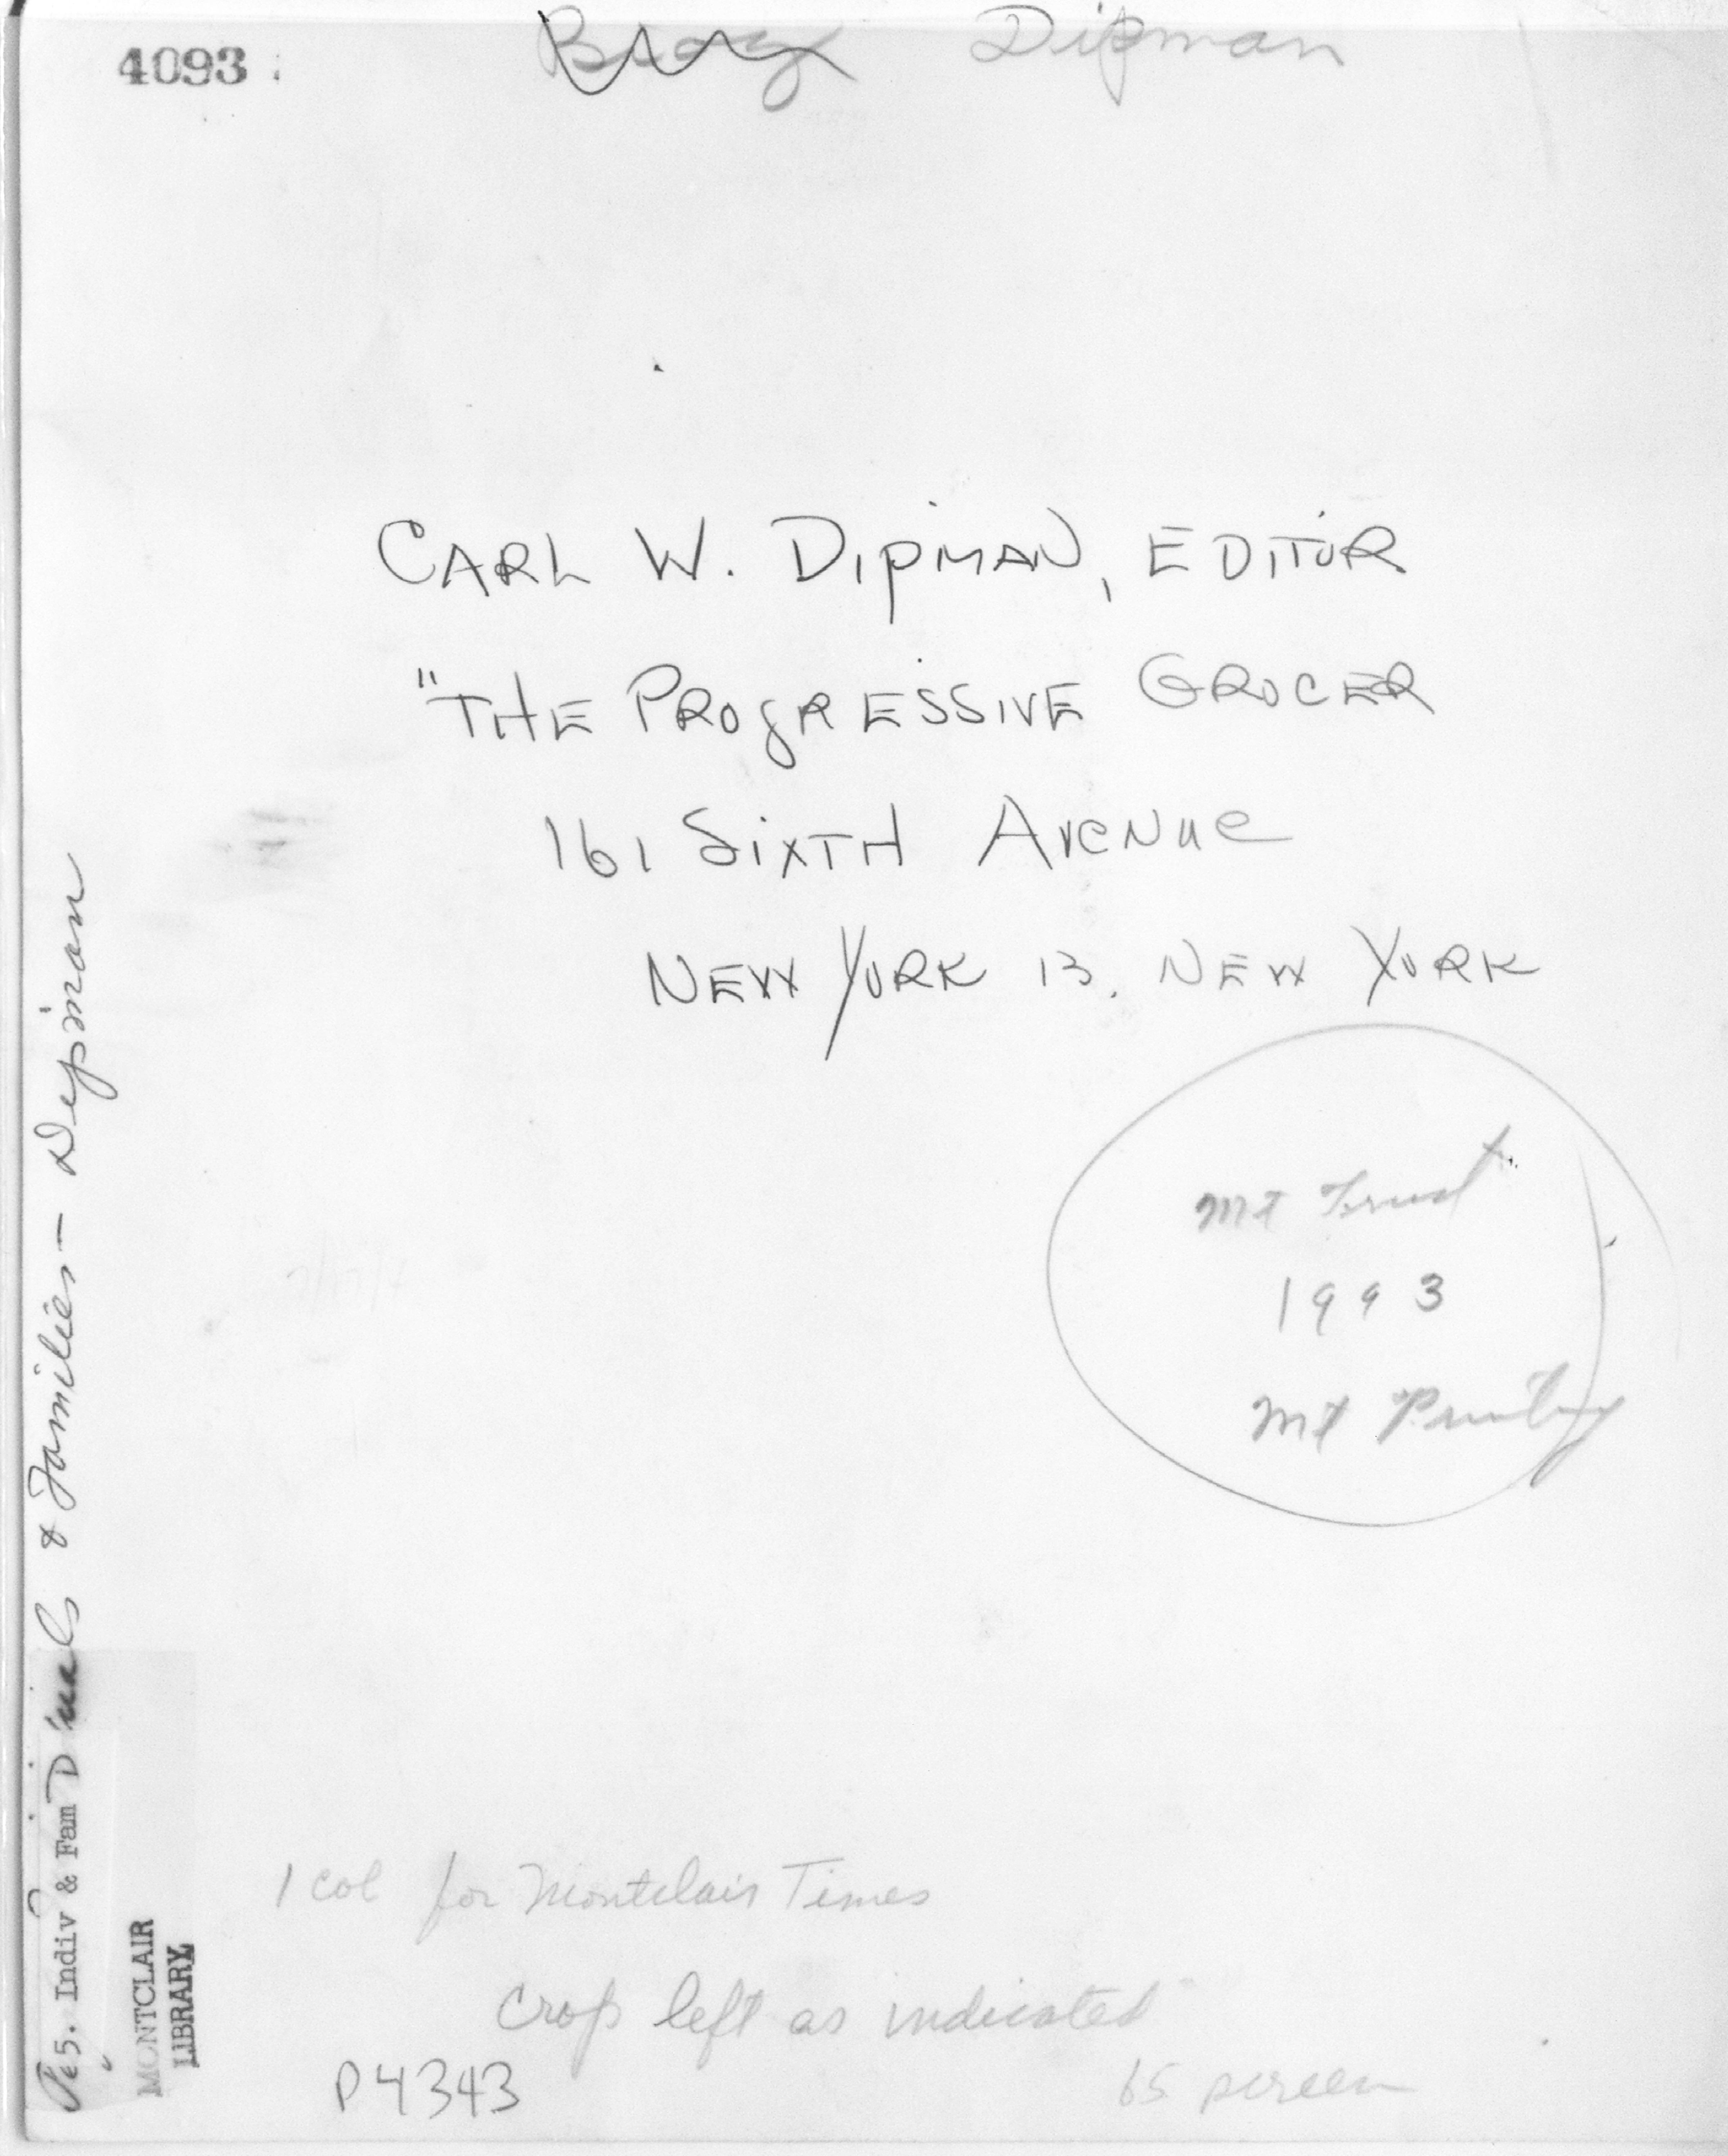 4093
Dipman
CARL W. DIPMAN, EDITOR
"THE PROGRESSIVE GROCER
161 SIXTH AVENUE
NEW YORK 13, NEW YORK
Mt Trust
1993
Mt
1 col for Montclair Times
Crop left as indicated
65 screen
P4343
& Families - Dipman
5. Indiv & Fam D
MONTCLAIR
LIBRARY